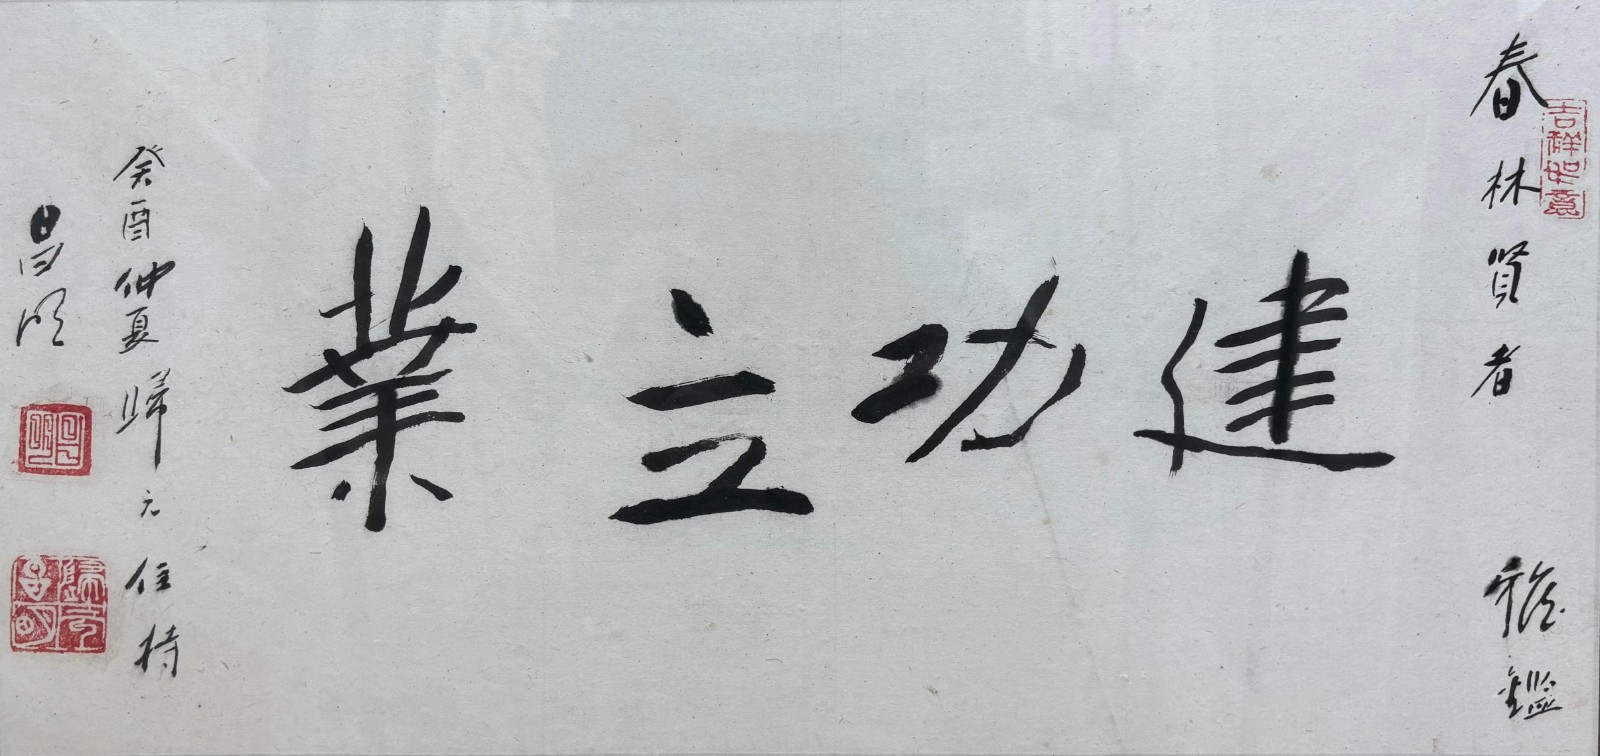 春林賢者 雅鑑
吉祥如意
建功立業
癸酉仲夏歸元住持
昌明
歸元昌明